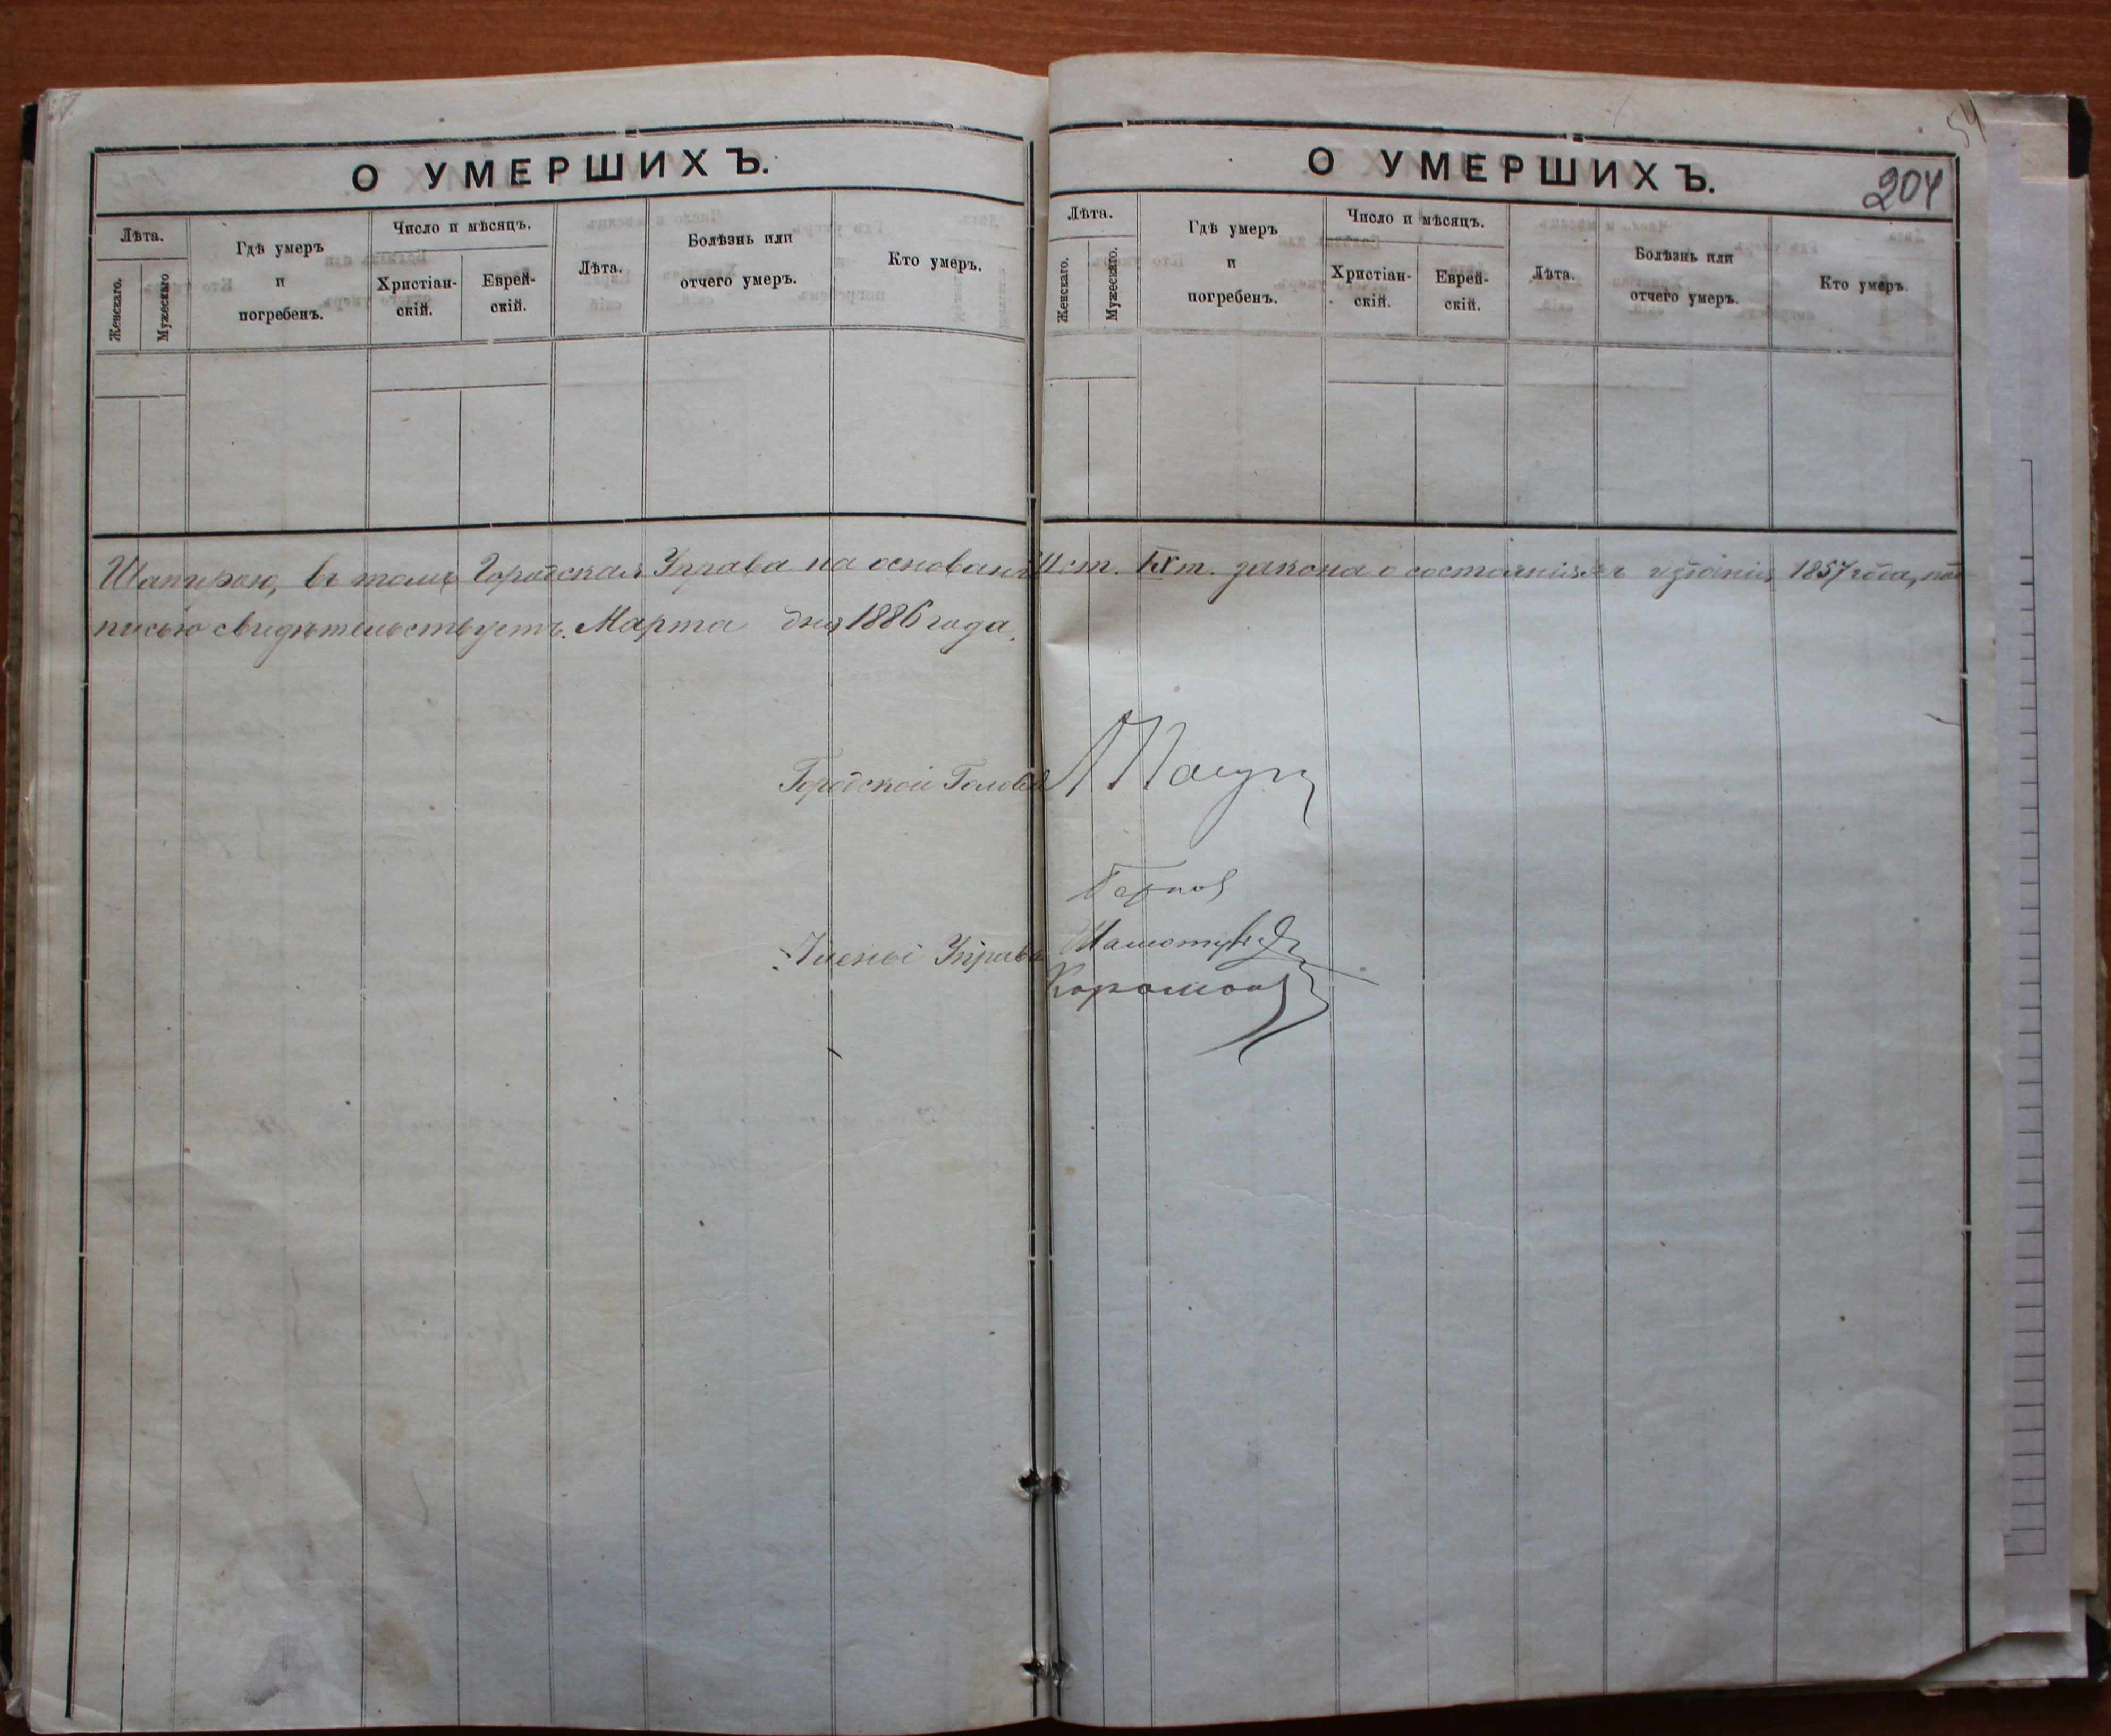 О УМЕРШИХЪ.
Лѣта.
Женскаго.
Мужескаго
Гдѣ умеръ
и
погребенъ.
Число и мѣсяцъ.
Христіан-
скій.
Еврей-
скій.
Лѣта.
Болѣзнь или
отчего умеръ.
Кто умеръ.
О УМЕРШИХЪ.
204
54
Лѣта.
Женскаго.
Мужескаго.
Гдѣ умеръ
и
погребенъ.
Число и мѣсяцъ.
Христіан-
скій.
Еврей-
скій.
Лѣта.
Болѣзнь или
отчего умеръ.
Кто умеръ.
Шапирою, въ томъ Городская Управа на основаніи ст. IХ т. закона о состояніяхъ изданія 1857 года, под
писью свидѣтельствуетъ. Марта дня 1886 года.
Городской Голова
Члены Управы